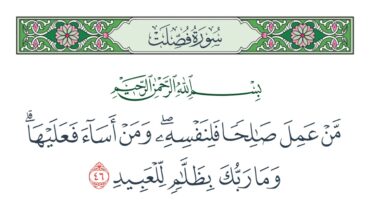 سُورَةُ فُصِّلَتْ
بِسْمِ اللَّهِ الرَّحْمَٰنِ الرَّحِيمِ
مَّنْ عَمِلَ صَٰلِحًا فَلِنَفْسِهِۦۖ وَمَنْ أَسَآءَ فَعَلَيْهَاۗ
وَمَا رَبُّكَ بِظَلَّٰمٍ لِّلْعَبِيدِ ٤٦